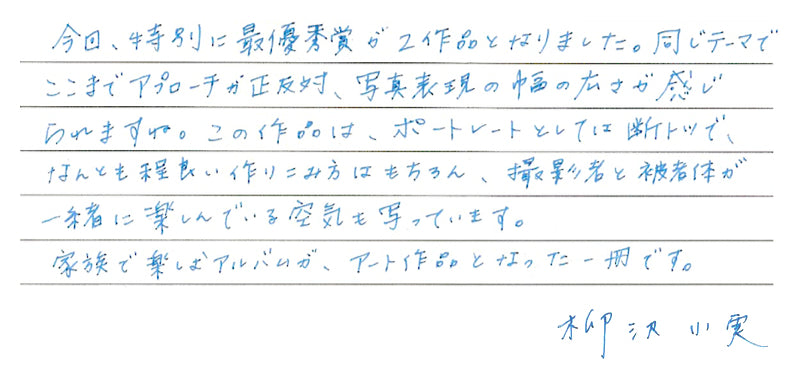 今回、特別に最優秀賞が2作品となりました。同じテーマで
ここまでアプローチが正反対、写真表現の幅の広さが感じ
られますね。この作品は、ポートレートとしては断トツで、
なんとも程良い作りこみ方はもちろん、撮影者と被者体が
一緒に楽しんでいる空気も写っています。
家族で楽しむアルバムが、アート作品となった一冊です。
柳沢小実